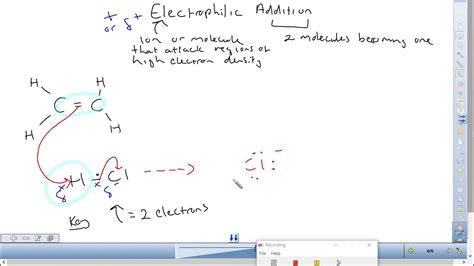 + or δ+
Electrophilic Addition
ion or molecule
that attack regions of
high electron density
2 molecules becoming one
H H
C = C
H H
δ+ H Cl δ-
Cl -
Key
= 2 electrons
Recording
6/6